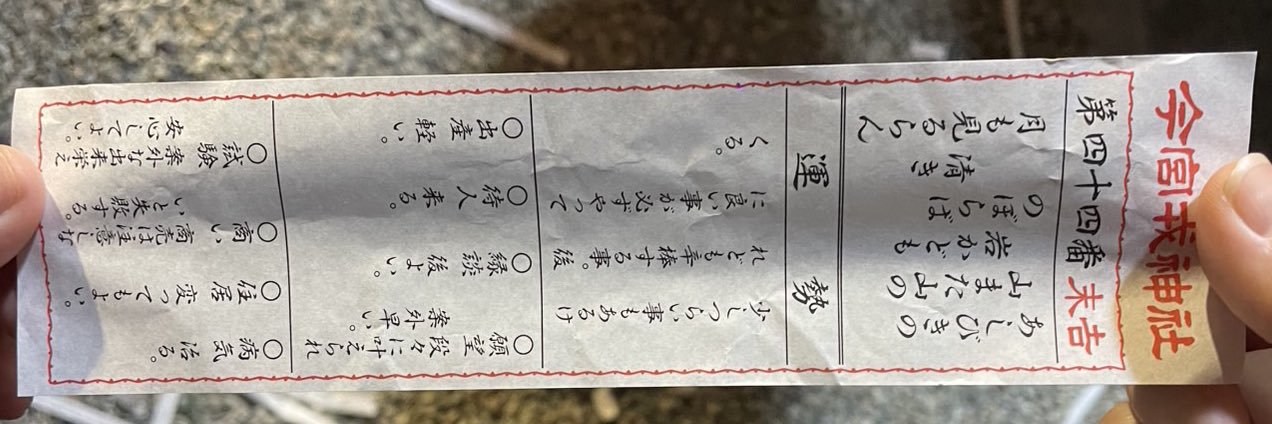 今宮戎神社
第四十四番 末吉
あしびきの
山また山の
岩かども
のぼらば
清き
月も見るらん
運勢
少しつらい事もあるけ
れども辛棒する事。後
に良い事が必ずやって
くる。
○願望 段々に叶えられ
案外早い。
○縁談 後よい。
○待人 来る。
○出産 軽い。
○病気 治る。
○住居 変ってもよい。
○商い 商売は注意しな
いと失敗する。
○試験 案外な出来栄え
安心してよい。